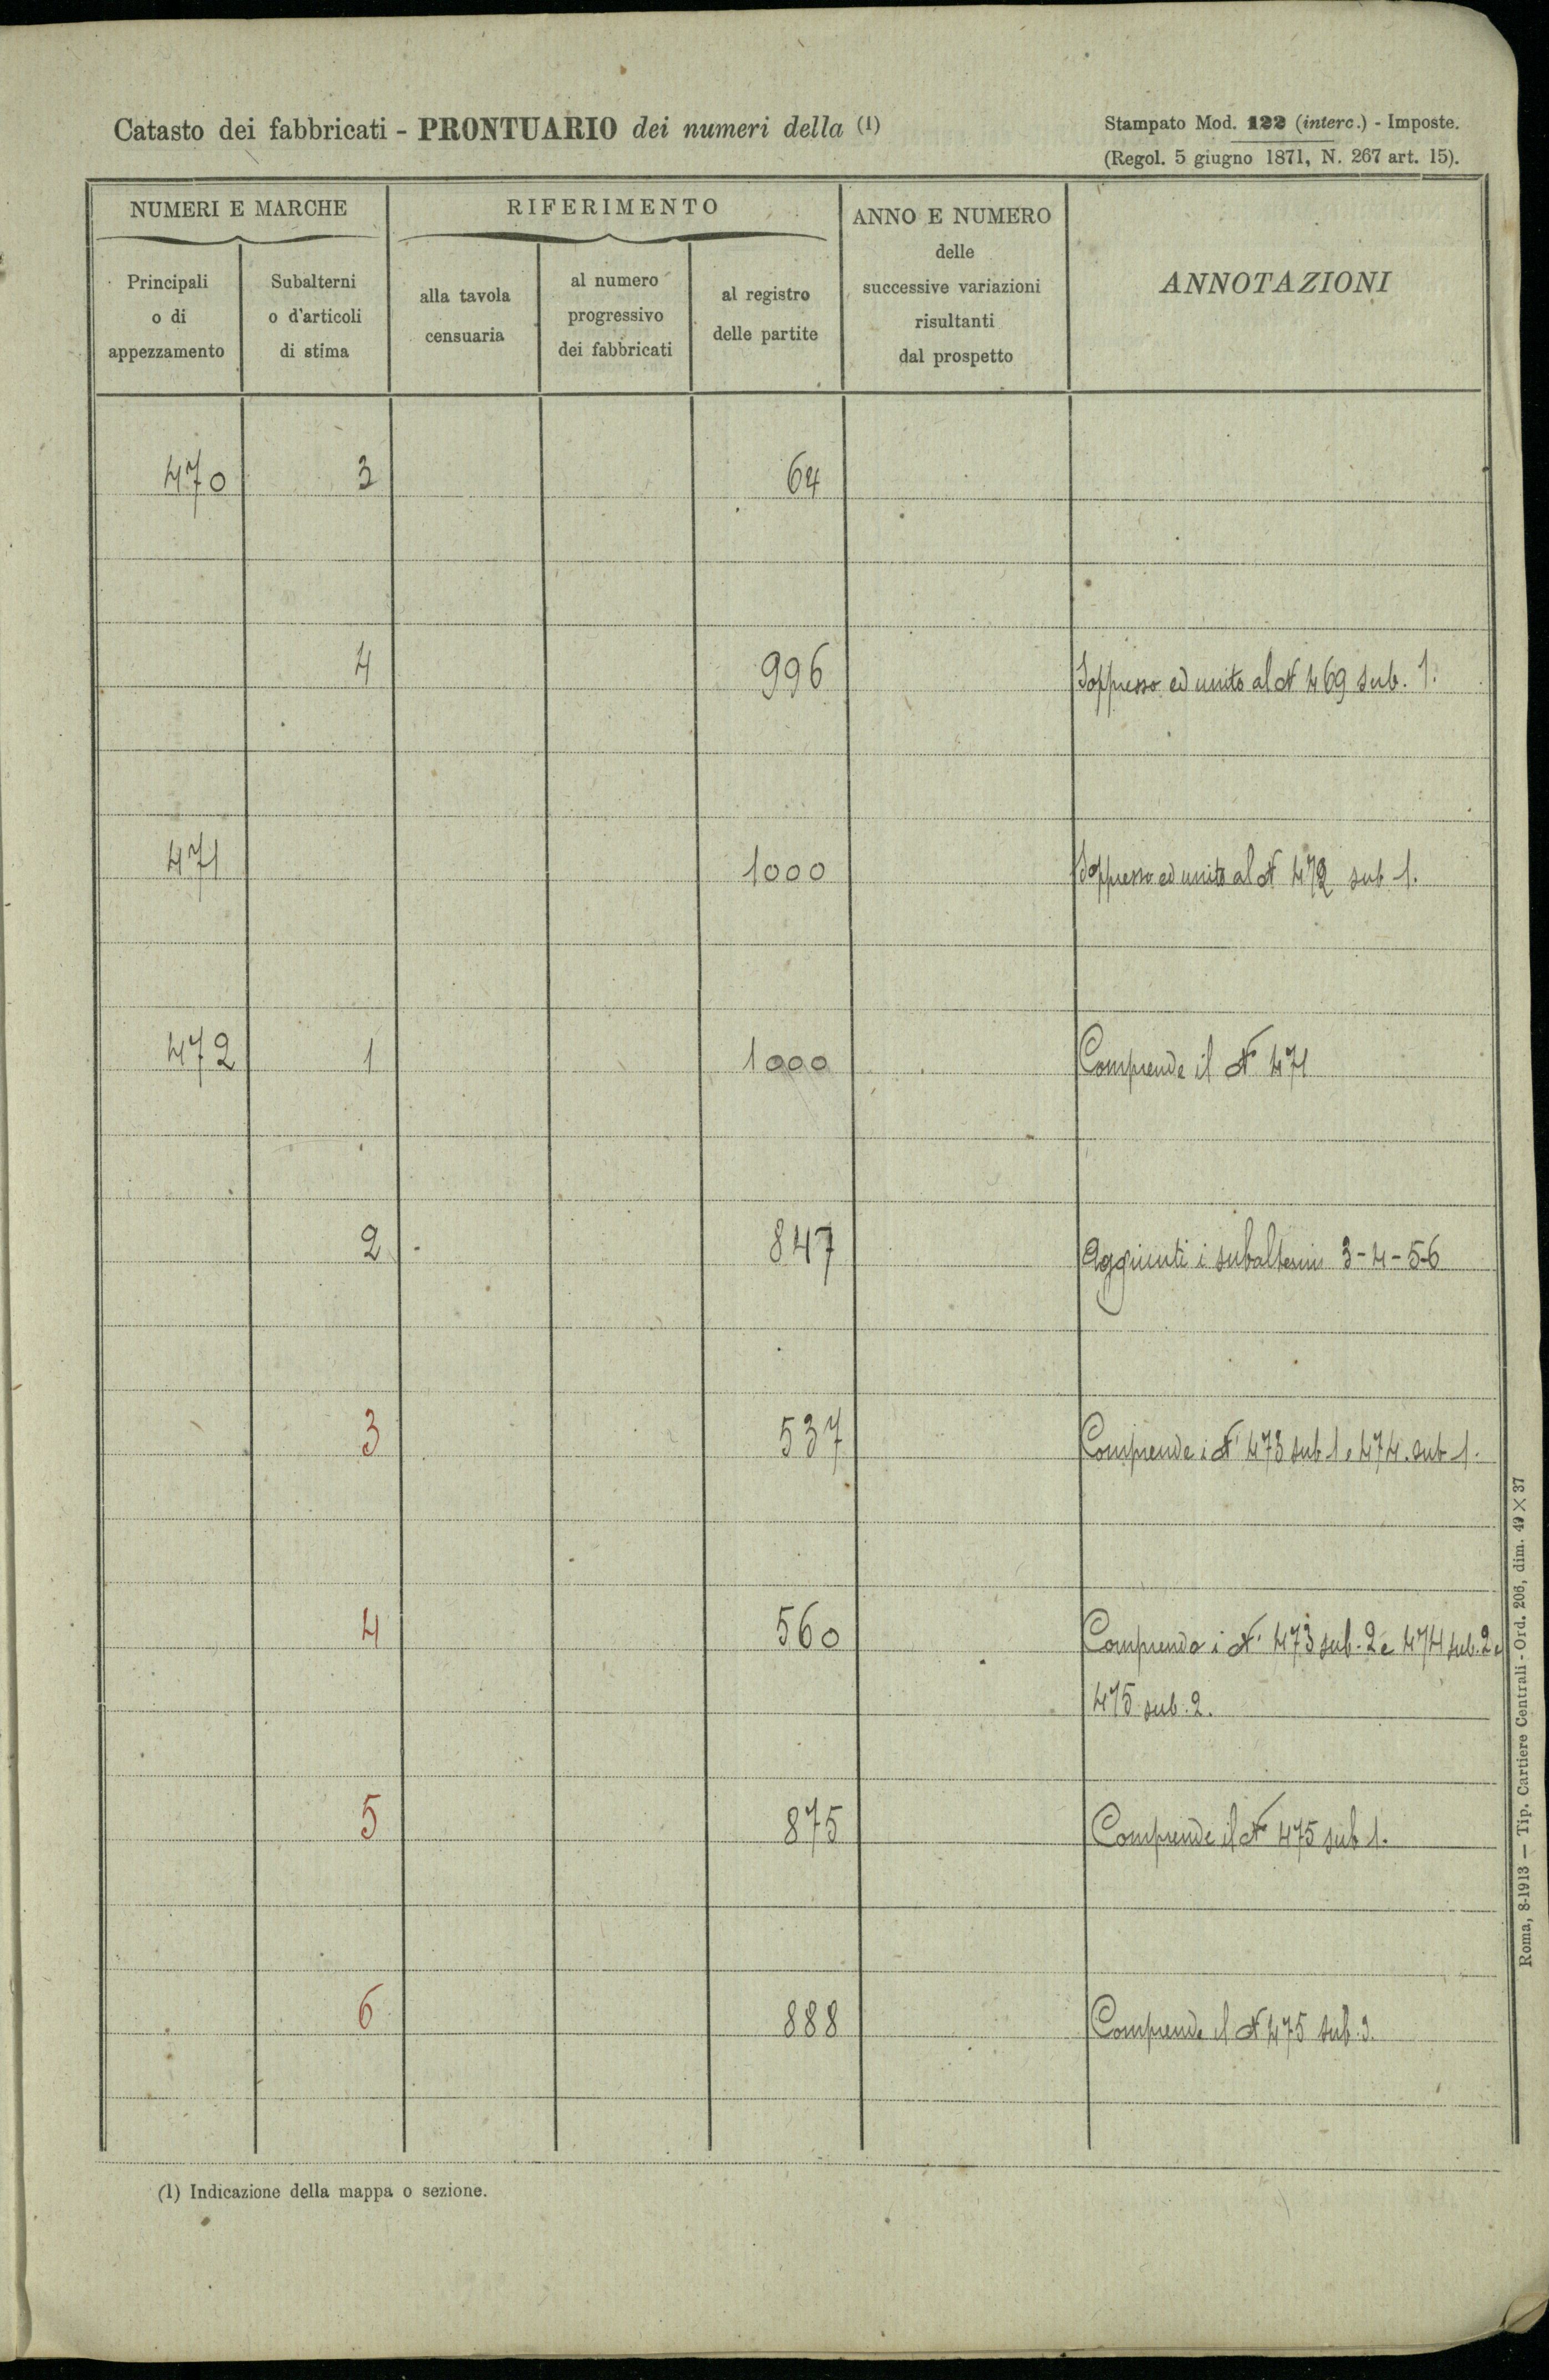 Catasto dei fabbricati - PRONTUARIO dei numeri della (1)
Stampato Mod. 122 (interc.) - Imposte.
(Regol. 5 giugno 1871, N. 267 art. 15).
NUMERI E MARCHE
RIFERIMENTO
ANNO E NUMERO
delle
successive variazioni
risultanti
dal prospetto
ANNOTAZIONI
Principali
o di
appezzamento
Subalterni
o d'articoli
di stima
alla tavola
censuaria
al numero
progressivo
dei fabbricati
al registro
delle partite
470 3 64
4 996 Soppresso ed unito al N 469 sub. 1.
471 1000 Soppresso ed unito al N 472 sub 1.
472 1 1000 Comprende il N 471
2 847 Aggiunti i subalterni 3-4-5-6
3 537 Comprende i N' 473 sub 1 e 474. sub 1.
4 560 Comprende i N' 473 sub. 2 e 474 sub. 2 e
475 sub. 2.
5 875 Comprende il N 475 sub 1.
6 888 Comprende il N 475 sub. 3.
(1) Indicazione della mappa o sezione.
Roma, 8-1913 — Tip. Cartiere Centrali - Ord. 206, dim. 49 × 37